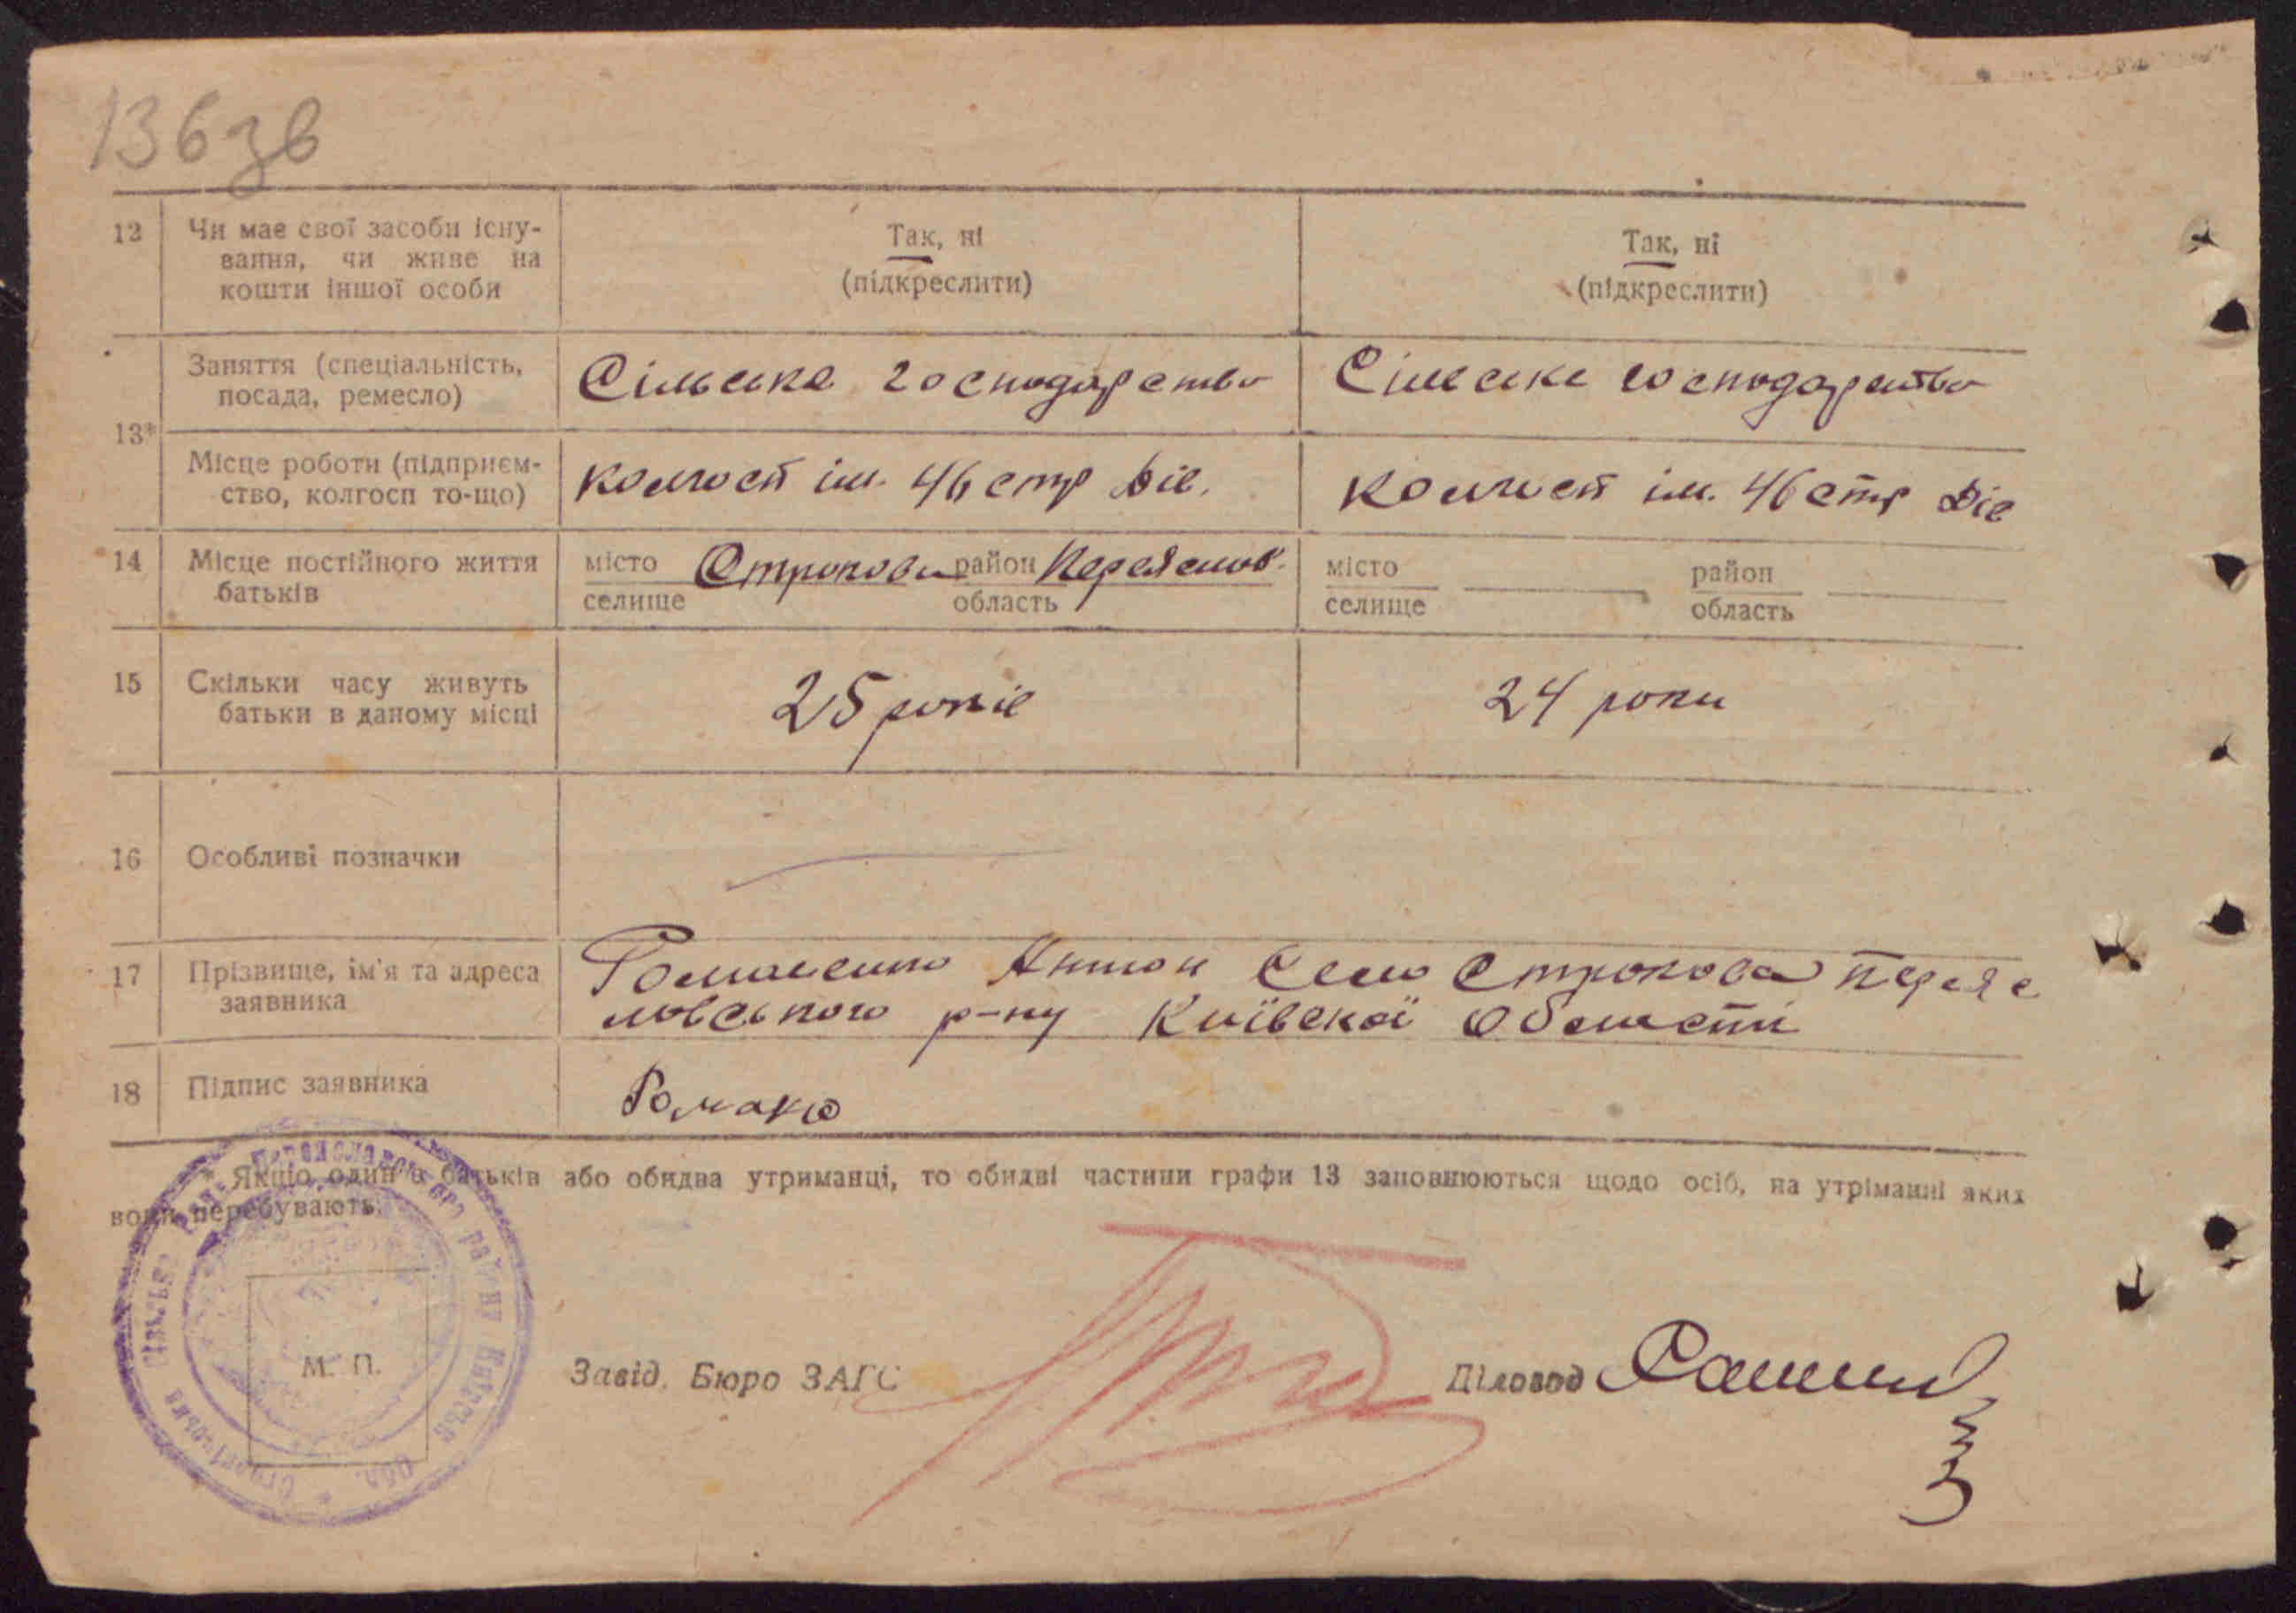 136 зв
12 Чи має свої засоби існу- Так, ні Так, ні
вання, чи живе на (підкреслити) (підкреслити)
кошти іншої особи
Заняття (спеціальність, Сільське господарство Сільське господарство
посада, ремесло)
13*
Місце роботи (підприєм- колгосп ім. 46 стр Див. колгосп ім. 46 стр Див
ство, колгосп то-що)
14 Місце постійного життя місто Строкова район Переяслов. місто район
батьків селище область селище область
15 Скільки часу живуть 25 років 24 роки
батьки в даному місці
16 Особливі позначки
17 Прізвище, ім'я та адреса Романенко Антон Село Строкова Переяс
заявника ловського р-ну Київскої Области
18 Підпис заявника Романо
* Якщо один з батьків або обидва утриманці, то обидві частини графи 13 заповнюються щодо осіб, на утріманні яких
вони перебувають.
М. П. Завід. Бюро ЗАГС Діловод